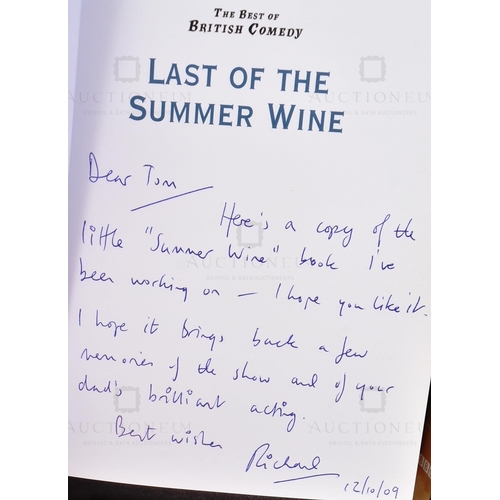 THE BEST OF
BRITISH COMEDY
LAST OF THE
SUMMER WINE
Dear Tom
Here's a copy of the
little "Summer Wine" book I've
been working on – I hope you like it.
I hope it brings back a few
memories of the show and of your
dad's brilliant acting.
Best wishes
Richard
12/10/09